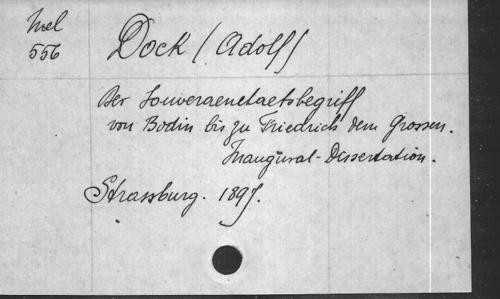 Mel
556
Dock (Adolf)
Der Souveraenetaetsbegriff
von Bodin bis zu Friedrich dem Grossen.
Inaugural-Dissertation.
Strassburg. 1897.